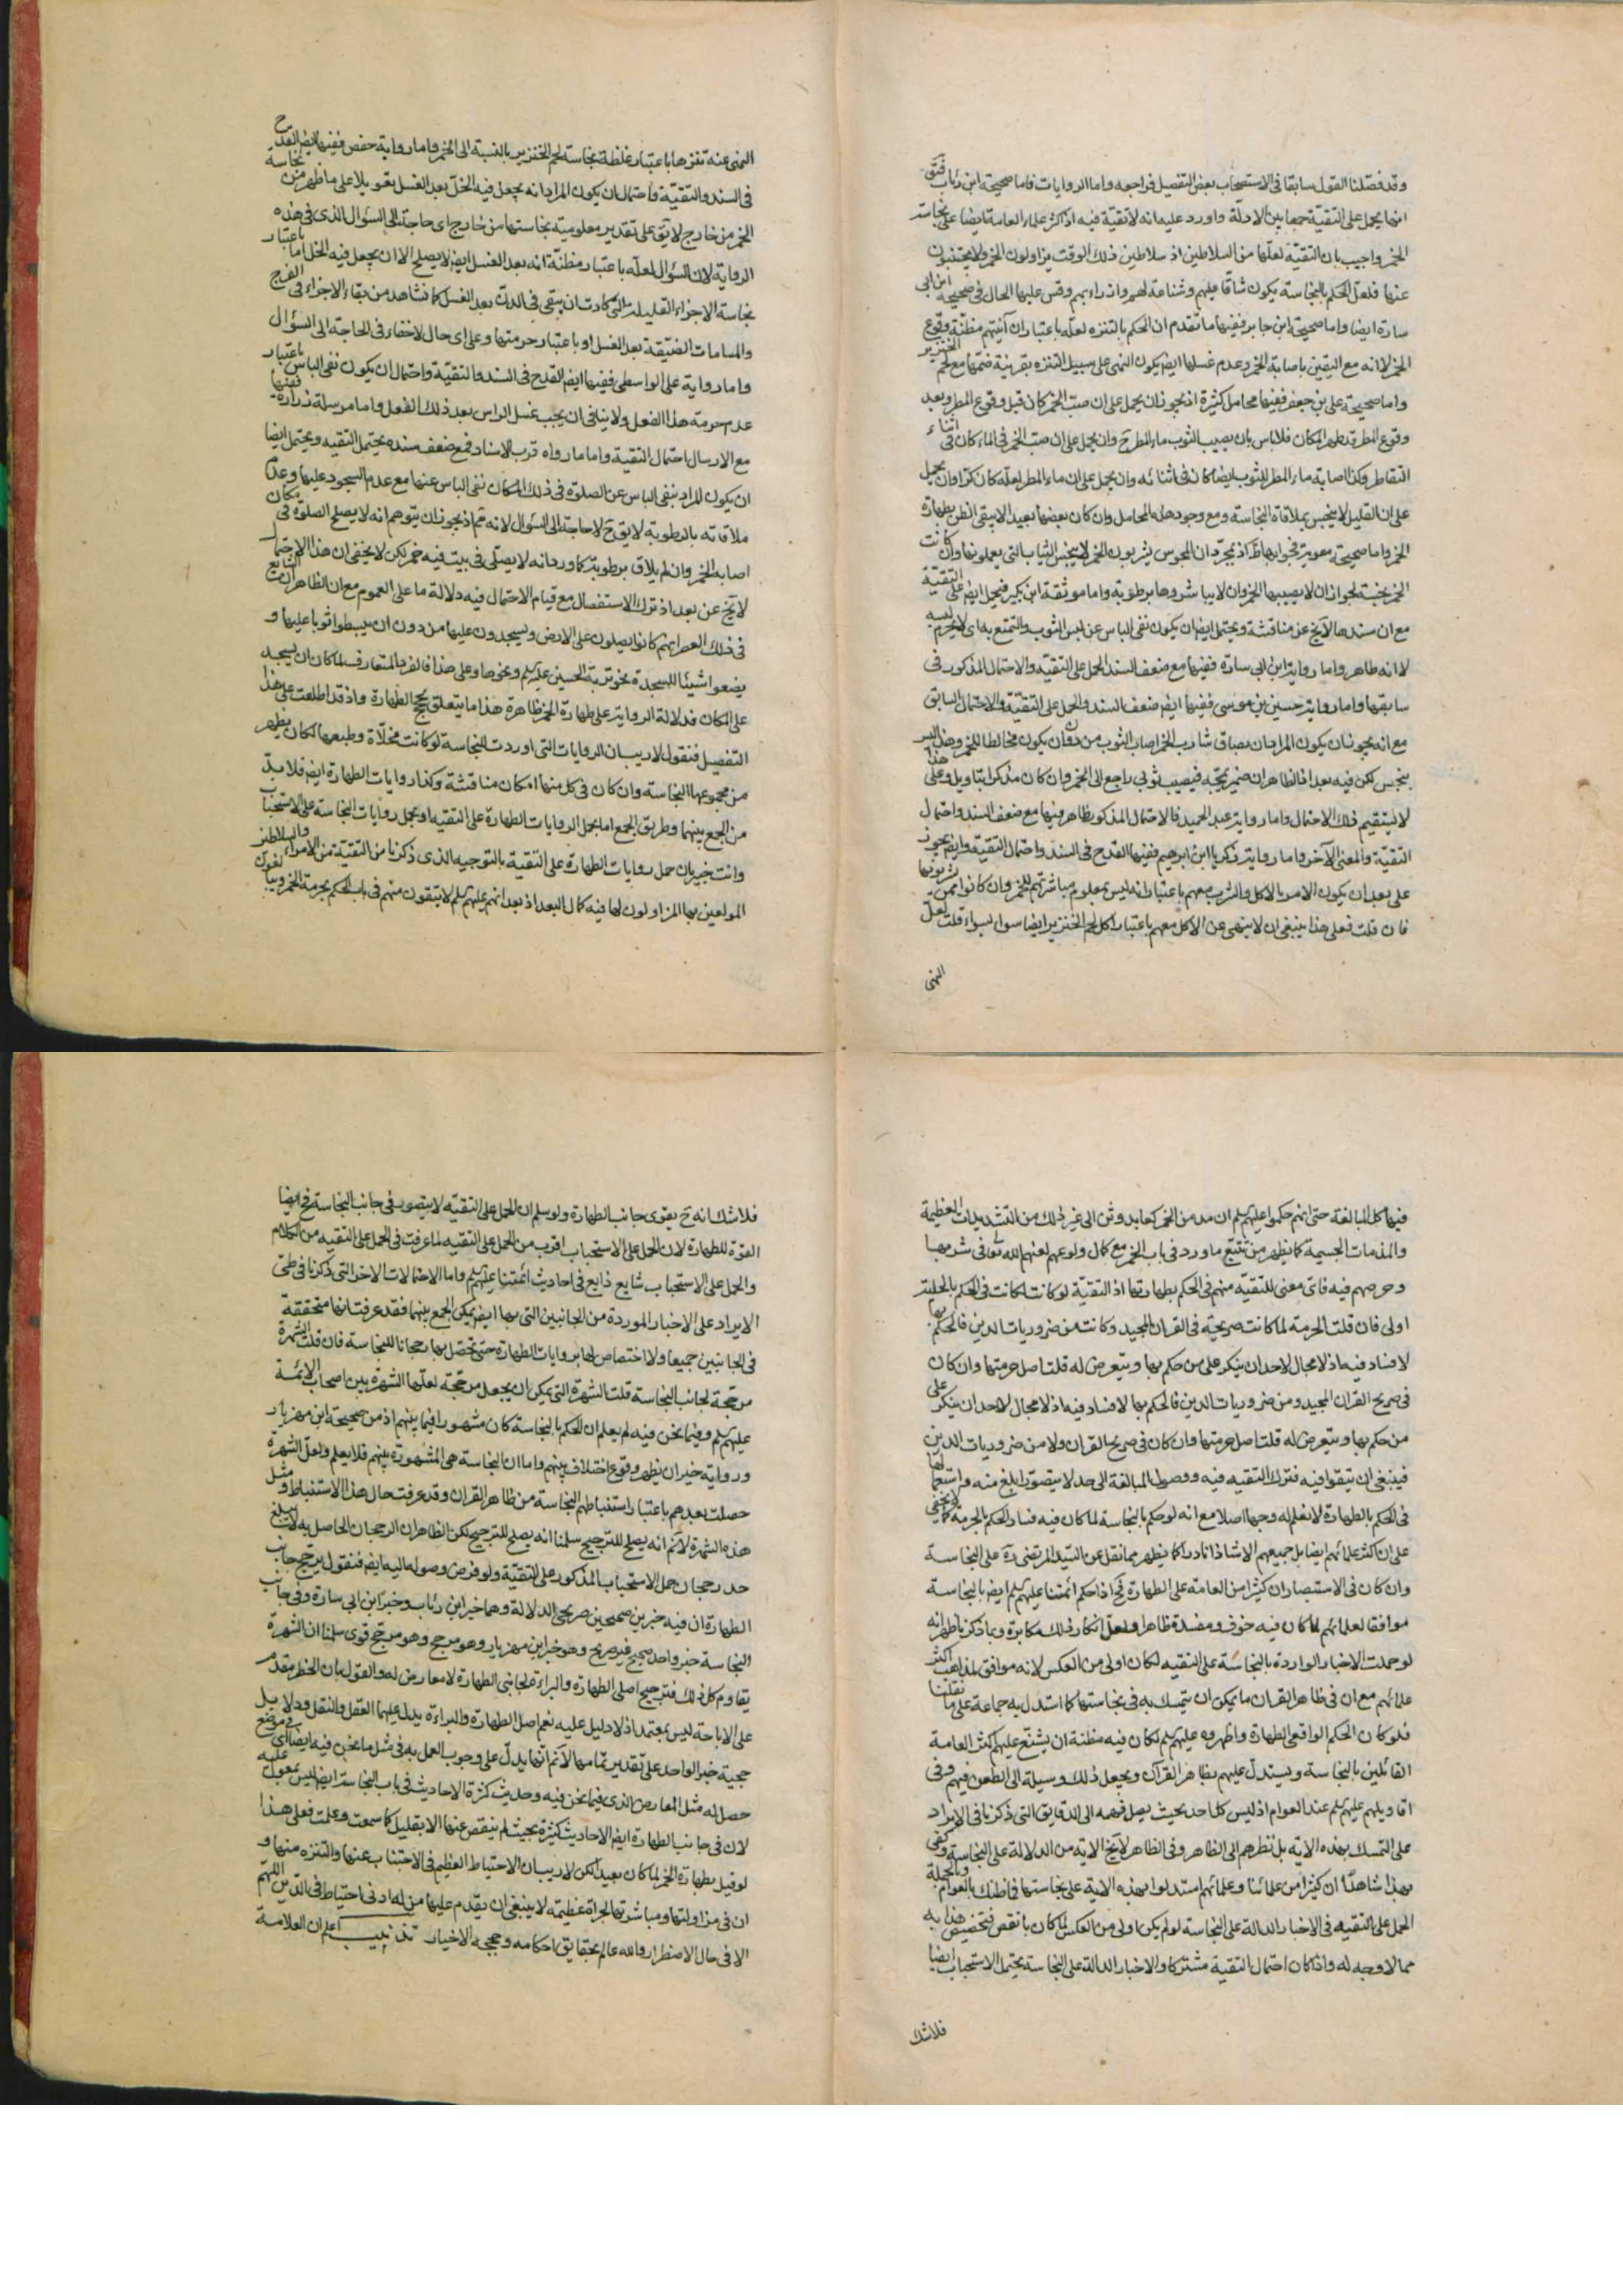 وقد فصّلنا القول سابقا فى الاستصحاب بعض التفصيل فراجعه واما الروايات فاما صحيحة ابن رئاب فنقول
انها يحمل على التقية جمعا بين الادلة واورد عليه انه لا تقية فيه اذ اكثر علماء العامة ايضا على نجاسة
الخمر واجيب بان التقية لعلّها من السلاطين اذ سلاطين ذلك الوقت يزاولون الخمر ولا يجتنبون
عنها فلعل الحكم بالنجاسة يكون شاقا عليهم وشناعة لهم وازراء بهم وقس عليها الحال فى صحيحة ابن ابى
سارة ايضا واما صحيحة ابن جابر ففيها ما تقدم ان الحكم بالتنزه لعلّه باعتبار ان آنيتهم مظنّة وقوع
الخمر لا انه مع اليقين باصابة الخمر وعدم غسلها ايضا يكون النهى على سبيل التنزه بقرينة ضمّها مع لحم الخنزير
واما صحيحة على بن جعفر ففيها محامل كثيرة اذ يجوز ان يحمل على ان صبّ الخمر كان قبل وقوع المطر وبعد
وقوع المطر تطهر المكان فلا باس بان يصيب الثوب ماء المطر ح وان يحمل على ان صبّ الخمر فى الماء كان فى اثناء
التقاطر وكذا اصابة ماء المطر للثوب ايضا كان فى اثنائه وان يحمل على ان ماء المطر لعلّه كان كرّا وان يحمل
على ان القليل لا ينجس بملاقاة النجاسة ومع وجود هذه المحامل وان كان بعضها بعيدا لا يبقى الظن بطهارة
الخمر واما صحيحة معوية فجوابها ظ اذ بمجرّد ان المجوس يشربون الخمر لا ينجس الثياب التى يعملونها وان كانت
الخمر نجسة لجواز ان لا يصيبها الخمر وان لا يباشروها برطوبة واما موثقة ابن بكير فيحمل ايضا على التقيّة
مع ان سندها لا يخ عن مناقشة ويحتمل ايضا ان يكون نفى الباس عن لبس الثوب والتمتع به اى لا يحرم لبسه
لا انه طاهر واما رواية ابن ابى سارة ففيها مع ضعف السند الحمل على التقيّة والاحتمال المذكور فى
سابقها واما رواية حسين بن موسى ففيها ايضا ضعف السند والحمل على التقيّة والاحتمال السابق
مع انه يجوز ان يكون المراد ان بصاق شارب الخمر اصاب الثوب من دون ان يكون مخالطا للخمر وهذا ليس
بنجس لكن فيه بعد اذ الظاهر ان ضمير يمجّه فيصيب ثوبى راجع الى الخمر وان كان مذكرا بتاويل وعلى هذا
لا يستقيم ذلك الاحتمال واما رواية عبد الحميد فالاحتمال المذكور ظاهر فيها مع ضعف السند واحتمال
التقيّة والمعنى الآخر واما رواية زكريا ابن ابراهيم ففيها القدح فى السند واحتمال التقية وايضا يجوز
على بعد ان يكون الامر بالاكل والشرب معهم باعتبار انه ليس بمعلوم مباشرتهم للخمر وان كانوا ممن يشربونها
فان قلت فعلى هذا ينبغى ان لا ينهى عن الاكل معهم باعتبار اكل لحم الخنزير ايضا سواء بسواء قلت لعلّ
النهى
النهى عنه تنزها باعتبار غلظة نجاسة لحم الخنزير بالنسبة الى الخمر واما رواية حفص ففيها ايضا القدح
فى السند والتقيّة واحتمال ان يكون المراد انه يجعل فيه الخلّ بعد الغسل تعويلا على ما ظهر من نجاسة
الخمر من خارج لا يق على تقدير معلومية نجاستها من خارج اى حاجة الى السؤال الذى فى هذه
الرواية لان السؤال لعلّه باعتبار مظنّة انه بعد الغسل ايضا لا يصلح الا ان يجعل فيه الخل اما باعتبار
نجاسة الاجزاء القليلة التى كادت ان يبقى فى الدن بعد الغسل كما نشاهد من بقاء الاجزاء فى الفرج
والمسامات الضيّقة بعد الغسل او باعتبار حرمتها وعلى اى حال لا خفاء فى الحاجة الى السؤال
واما رواية على الواسطى ففيها ايضا القدح فى السند والتقيّة واحتمال ان يكون نفى الباس باعتبار
عدم حرمة هذا الفعل ولا ينافى ان يجب غسل الراس بعد ذلك الفعل واما مرسلة زرارة ففيها
مع الارسال احتمال التقية واما ما رواه قرب الاسناد فمع ضعف سنده يحتمل التقيه ويحتمل ايضا
ان يكون المراد بنفى الباس عن الصلوة فى ذلك المكان نفى الباس عنها مع عدم السجود عليها وعدم
ملاقاته بالرطوبة لا يق ح لا حاجة الى السؤال لانه ثم اذ يجوز ان يتوهم انه لا يصلح الصلوة فى مكان
اصابه الخمر وان لم يلاق برطوبة كما ورد انه لا يصلّى فى بيت فيه خمر لكن لا يخفى ان هذا الاحتمال
لا يخ عن بعد اذ ترك الاستفصال مع قيام الاحتمال فيه دلالة ما على العموم مع ان الظاهر ان الشايع
فى ذلك العصر انهم كانوا يصلون على الارض ويسجدون عليها من دون ان يبسطوا ثوبا عليها و
يضعوا شيئا للسجدة نحو تربة الحسين عليه السلم ونحوها وعلى هذا فالفرد المتعارف للمكان ان يسجد
على المكان فدلالة الرواية على طهارة الخمر ظاهرة هذا ما يتعلق بحجج الطهارة واذ قد اطلعت على هذا
التفصيل فنقول لا ريب ان الروايات التى اوردت للنجاسة لو كانت مخلّاة وطبعها لكان يظهر
من مجموعها النجاسة وان كان فى كل منها امكان مناقشة وكذا روايات الطهارة ايضا فلا بدّ
من الجمع بينهما وطريق الجمع اما بحمل الروايات الطهارة على التقيه او بحمل روايات النجاسة على الاستحباب
وانت خبير بان حمل روايات الطهارة على التقية بالتوجيه الذى ذكرنا من التقيّة من الامراء والسلاطين
المولعين بها المزاولون لها فيه كمال البعد اذ بعد انهم عليهم السلم لا يتقون منهم فى باب الحكم بحرمة الخمر ويبالغون
فيها كل المبالغة حتى انهم حكموا عليهم السلم ان مدمن الخمر كعابد وثن الى غير ذلك من التشديدات العظيمة
والمذمات الجسيمة كما يظهر من تتبع ما ورد فى باب الخمر مع كمال ولوعهم لعنهم الله تعالى فى شربها
وحرصهم فيه فاى معنى للتقيّة منهم فى الحكم بطهارتها اذ التقيّة لو كانت لكانت فى الحكم بالحلية
اولى فان قلت الحرمة لما كانت صريحة فى القران المجيد وكانت من ضروريات الدين فالحكم بها
لا فساد فيه اذ لا مجال لاحد ان ينكر على من حكم بها ويتعرض له قلت اصل حرمتها وان كان
فى صريح القران المجيد ومن ضروريات الدين فالحكم بها لا فساد فيه اذ لا مجال لاحد ان ينكر على
من حكم بها ويتعرض له قلت اصل حرمتها وان كان فى صريح القران ولا من ضروريات الدين
فينبغى ان يتقوا فيه فترك التقيه فيه ووصول المبالغة الى حد لا يتصوّر ابلغ منه واستعمالها
فى الحكم بالطهارة لا نعلم له وجها اصلا مع انه لو حكم بالنجاسة لما كان فيه فساد الحكم بالحرمة كما لا يخفى
على ان اكثر علمائهم ايضا بل جميعهم الا شاذا نادرا كما يظهر مما نقل عن السيّد المرتضى ره على النجاسة
وان كان فى الاستبصار ان كثيرا من العامة على الطهارة فح اذا حكم ائمتنا عليهم السلم ايضا بالنجاسة
موافقا لعلمائهم لما كان فيه خوف ومفسدة ظاهرا ولعل انكار ذلك مكابرة وبما ذكرنا ظهر انه
لو حملت الاخبار الواردة بالنجاسة على التقيه لكان اولى من العكس لانه موافق لمذاهب اكثر
علمائهم مع ان فى ظاهر القران ما يمكن ان يتمسك به فى نجاستها كما استدل به جماعة على ما نقلنا
فلو كان الحكم الواقعى الطهارة واظهروه عليهم السلم لكان فيه مظنة ان يشنّع عليهم اكثر العامة
القائلين بالنجاسة ويستدلّ عليهم بظاهر القران ويجعل ذلك وسيلة الى الطعن فيهم وفى
اقاويلهم عليهم السلم عند العوام اذ ليس كل احد بحيث يصل فهمه الى الدقايق التى ذكرنا فى الايراد
على التمسك بهذه الاية بل نظرهم الى الظاهر وفى الظاهر لا يخ الاية من الدلالة على النجاسة وكفى
بهذا شاهدا ان كثيرا من علمائنا وعلمائهم استدلوا بهذه الاية على نجاستها فما ظنك بالعوام وبالجملة
الحمل على التقيه فى الاخبار الدالة على النجاسة لو لم يكن اولى من العكس لما كان بانقص فتخصيص هذا به
مما لا وجه له واذا كان احتمال التقية مشتركا والاخبار الدالة على النجاسة يحتمل الاستحباب ايضا
فلا شك
فلا شك انه ح يقوى جانب الطهارة ولو سلم ان الحمل على التقيّه لا يتصور فى جانب النجاسة فح ايضا
القوة للطهارة لان الحمل على الاستحباب اقرب من الحمل على التقيه لما عرفت فى الحمل على التقيه من الكلام
والحمل على الاستحباب شايع ذايع فى احاديث ائمتنا عليهم السلم واما الاحتمالات الاخر التى ذكرنا فى طىّ
الايراد على الاخبار الموردة من الجانبين التى بها ايضا يمكن الجمع بينهما فقد عرفت انها متحققة
فى الجانبين جميعا ولا اختصاص لها بروايات الطهارة حتى يحصل بها رجحانا للنجاسة فان قلت الشهرة
مرجّحة لجانب النجاسة قلت الشهرة التى يمكن ان يجعل مرجّحة لعلّها الشهرة بين اصحاب الائمة
عليهم السلم وفيما نحن فيه لم يعلم ان الحكم بالنجاسة كان مشهورا فيما بينهم اذ من صحيحة ابن مهزيار
ورواية خيران يظهر وقوع اختلاف بينهم واما ان النجاسة هى المشهورة بينهم فلا يعلم ولعلّ الشهرة
حصلت بعدهم باعتبار استنباطهم النجاسة من ظاهر القران وقد عرفت حال هذا الاستنباط ومثل
هذه الشهرة لا نم انه يصلح للترجيح سلمنا انه يصلح للترجيح لكن الظاهر ان الرجحان الحاصل به لا يبلغ
حد رجحان حمل الاستحباب المذكور على التقيّة ولو فرض وصوله اليه ايضا فنقول يرجح جانب
الطهارة ان فيه خبرين صحيحين صريحى الدلالة وهما خبر ابن رئاب وخبر ابن ابى سارة وفى جانب
النجاسة خبر واحد صحيح غير صريح وهو خبر ابن مهزيار وهو مرجح وهو مرجح قوى سلمنا ان الشهرة
يقاوم كل ذلك فترجيح اصلى الطهارة والبراءة لجانبى الطهارة لا معارض له والقول بان الحظر مقدم
على الاباحة ليس بمعتمد اذ لا دليل عليه نعم اصل الطهارة والبراءة يدل عليهما العقل والنقل ودلايل
حجية خبر الواحد على تقدير تمامها لا نم انها يدلّ على وجوب العمل به فى مثل ما نحن فيه ايضا اى فى موضع
حصل له مثل المعارض الذى فيما نحن فيه وحديث كثرة الاحاديث فى باب النجاسة ايضا ليس بمعول عليه
لان فى جانب الطهارة ايضا الاحاديث كثيرة بحيث لم ينقص عنها الا بقليل كما سمعت وعلمت فعلى هذا
لو قيل بطهارة الخمر لما كان بعيدا لكن لا ريب ان الاحتياط العظيم فى الاجتناب عنها والتنزه منها و
ان فى مزاولتها ومباشرتها لجراة عظيمة لا ينبغى ان يقدم عليها من له ادنى احتياط فى الدّين اللهم
الا فى حال الاضطرار والله عالم بحقايق احكامه وحججه الاخيار تذنيب اعلم ان العلامة